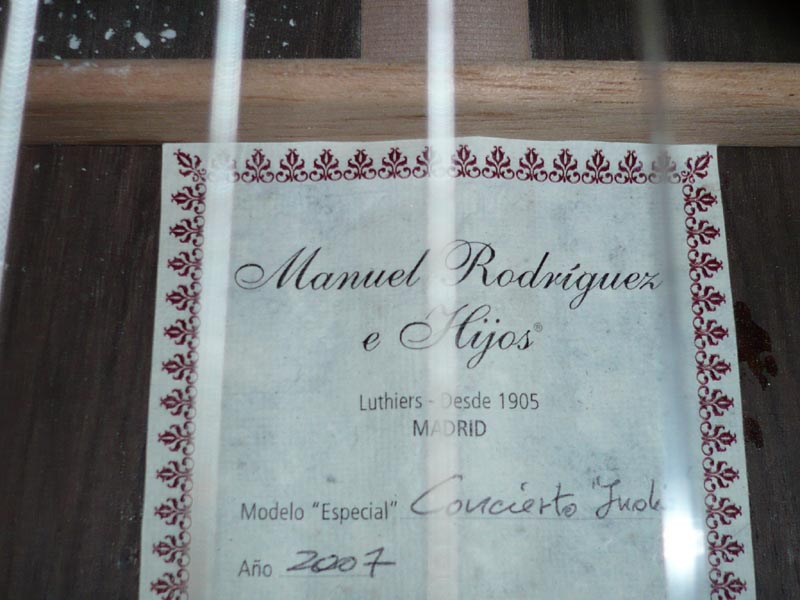 Manuel Rodríguez
e Hijos®
Luthiers - Desde 1905
MADRID
Modelo "Especial" Concierto
Año 2007